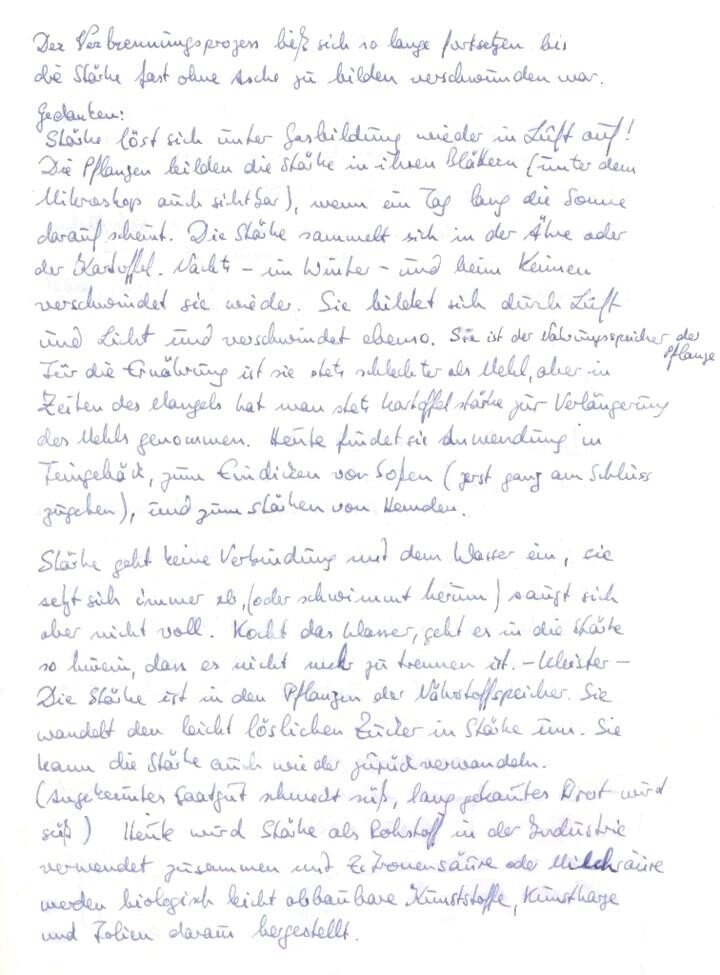 Der Verbrennungsprozess ließ sich so lange fortsetzen bis
die Stärke fast ohne Asche zu bilden verschwunden war.
Gedanken:
Stärke löst sich unter Gasbildung wieder in Luft auf!
Die Pflanzen bilden die Stärke in ihren Blättern (unter dem
Mikroskop auch sichtbar), wenn ein Tag lang die Sonne
darauf scheint. Die Stärke sammelt sich in der Ähre oder
der Kartoffel. Nachts – im Winter – und beim Keimen
verschwindet sie wieder. Sie bildet sich durch Luft
und Licht und verschwindet ebenso. Sie ist der Nahrungsspeicher der
Pflanze
Für die Ernährung ist sie stets schlechter als Mehl, aber in
Zeiten des Mangels hat man stets Kartoffelstärke zur Verlängerung
des Mehls genommen. Heute findet sie Anwendung in
Feingebäck, zum Eindicken von Soßen (erst ganz am Schluss
zugeben), und zum Stärken von Hemden.
Stärke geht keine Verbindung mit dem Wasser ein, sie
setzt sich immer ab, (oder schwimmt herum) saugt sich
aber nicht voll. Kocht das Wasser, geht es in die Stärke
so hinein, dass es nicht mehr zu trennen ist. – Kleister –
Die Stärke ist in den Pflanzen der Nährstoffspeicher. Sie
wandelt den leicht löslichen Zucker in Stärke um. Sie
kann die Stärke auch wieder zurückverwandeln.
(Angekeimtes Saatgut schmeckt süß, lang gekautes Brot wird
süß) Heute wird Stärke als Rohstoff in der Industrie
verwendet zusammen mit Zitronensäure oder Milchsäure
werden biologisch leicht abbaubare Kunststoffe, Kunstharze
und Folien daraus hergestellt.